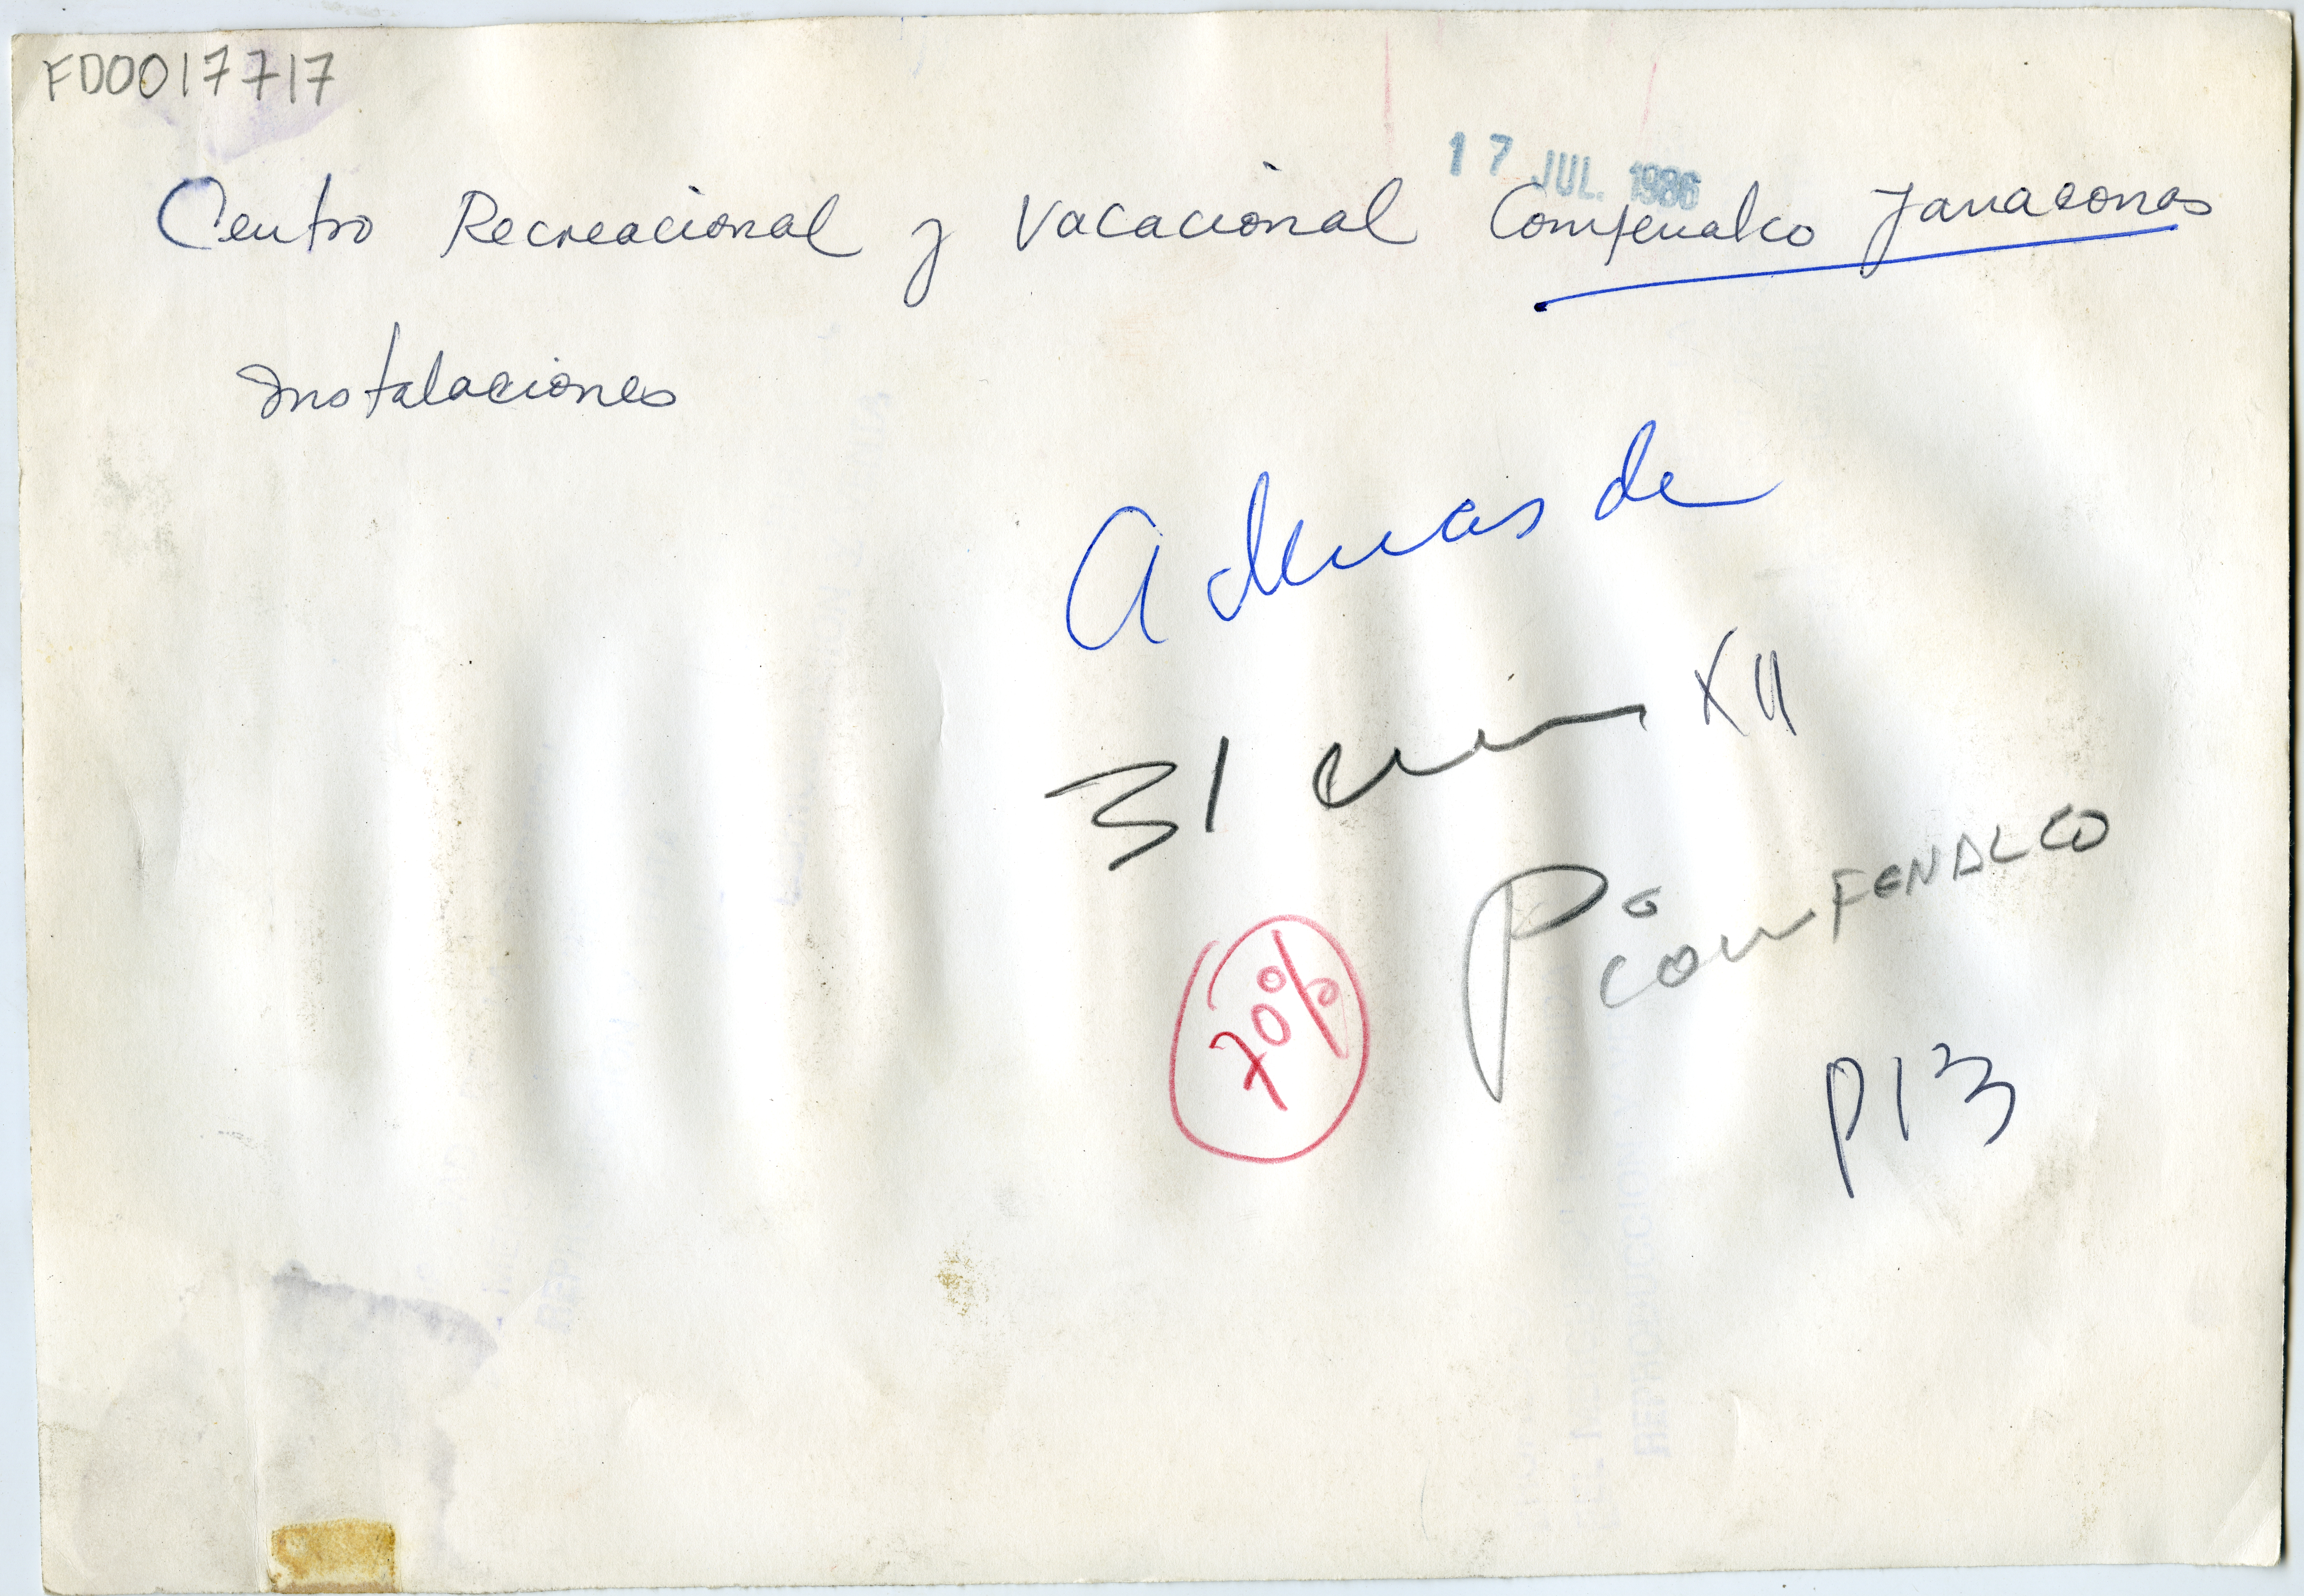 FD0017717
17 JUL. 1986
Centro Recreacional y Vacacional Comfenalco Yanaconas
Instalaciones
Ademas de
31 cm XII
Pa
comFENALCO
70%
P13